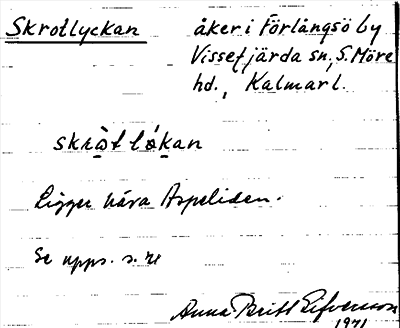 Skrotlyckan
åker i Förlångsö by
Vissefjärda sn, S. Möre
hd., Kalmar l.
skròt lə́kan
Ligger nära Aspeliden.
Se upps. s.
Anna-Britt Elfversson
1971